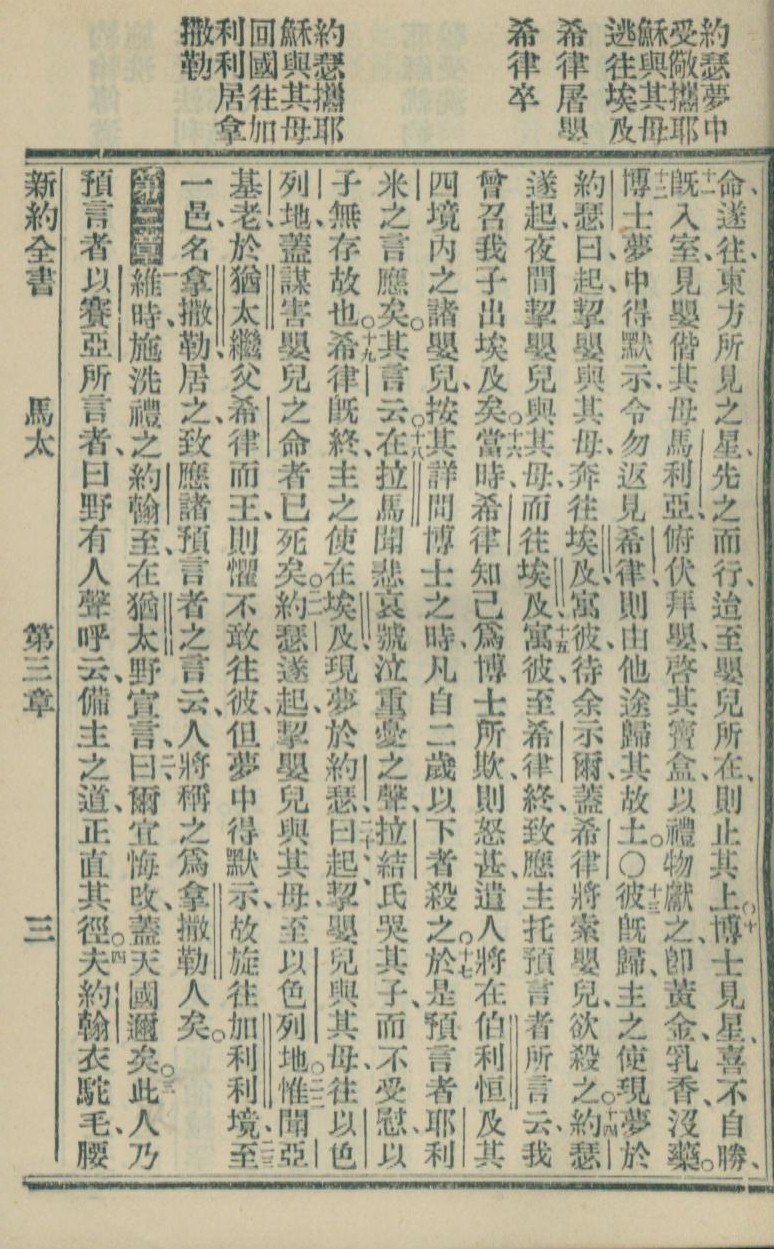 約瑟夢中
受儆攜耶
穌與其母
逃往埃及
希律屠嬰
希律卒
約瑟攜耶
穌與其母
回國往加
利利居拿
撒勒
命、遂往、東方所見之星、先之而行、迨至嬰兒所在、則止其上、○十博士見星、喜不自勝、
十一既入室、見嬰偕其母馬利亞、俯伏拜嬰、啓其寶盒、以禮物獻之、卽黃金、乳香、沒藥。
十二博士夢中得默示、令勿返見希律、則由他途歸其故土。○十三彼既歸、主之使現夢於
約瑟曰、起、挈嬰與其母、奔往埃及、寓彼、待余示爾、蓋希律將索嬰兒、欲殺之、○十四約瑟
遂起、夜間挈嬰兒與其母、而往埃及、十五寓彼、至希律終、致應主托預言者所言云、我
曾召我子出埃及矣、○十六當時、希律知己爲博士所欺、則怒甚、遣人將在伯利恒、及其
四境內之諸嬰兒、按其詳問博士之時、凡自二歲以下者殺之、○十七於是預言者耶利
米之言應矣、其言云、○十八在拉馬聞悲哀號泣重憂之聲、拉結氏哭其子、而不受慰、以
子無存故也、○十九希律既終、主之使在埃及、現夢於約瑟曰、二十起、挈嬰兒與其母、往以色
列地、蓋謀害嬰兒之命者已死矣、○二一約瑟遂起、挈嬰兒與其母、至以色列地、○二二惟聞亞
基老於猶太繼父希律而王、則懼、不敢往彼、但夢中得默示、故旋往加利利境、二三至
一邑、名拿撒勒、居之、致應諸預言者之言云、人將稱之爲拿撒勒人矣。
第三章 一維時、施洗禮之約翰至、在猶太野宣言、二曰、爾宜悔改、蓋天國邇矣、○三此人乃
預言者以賽亞所言者、曰、野有人聲呼云、備主之道、正直其徑、○四夫約翰衣駝毛、腰
新約全書 馬太 第三章 三